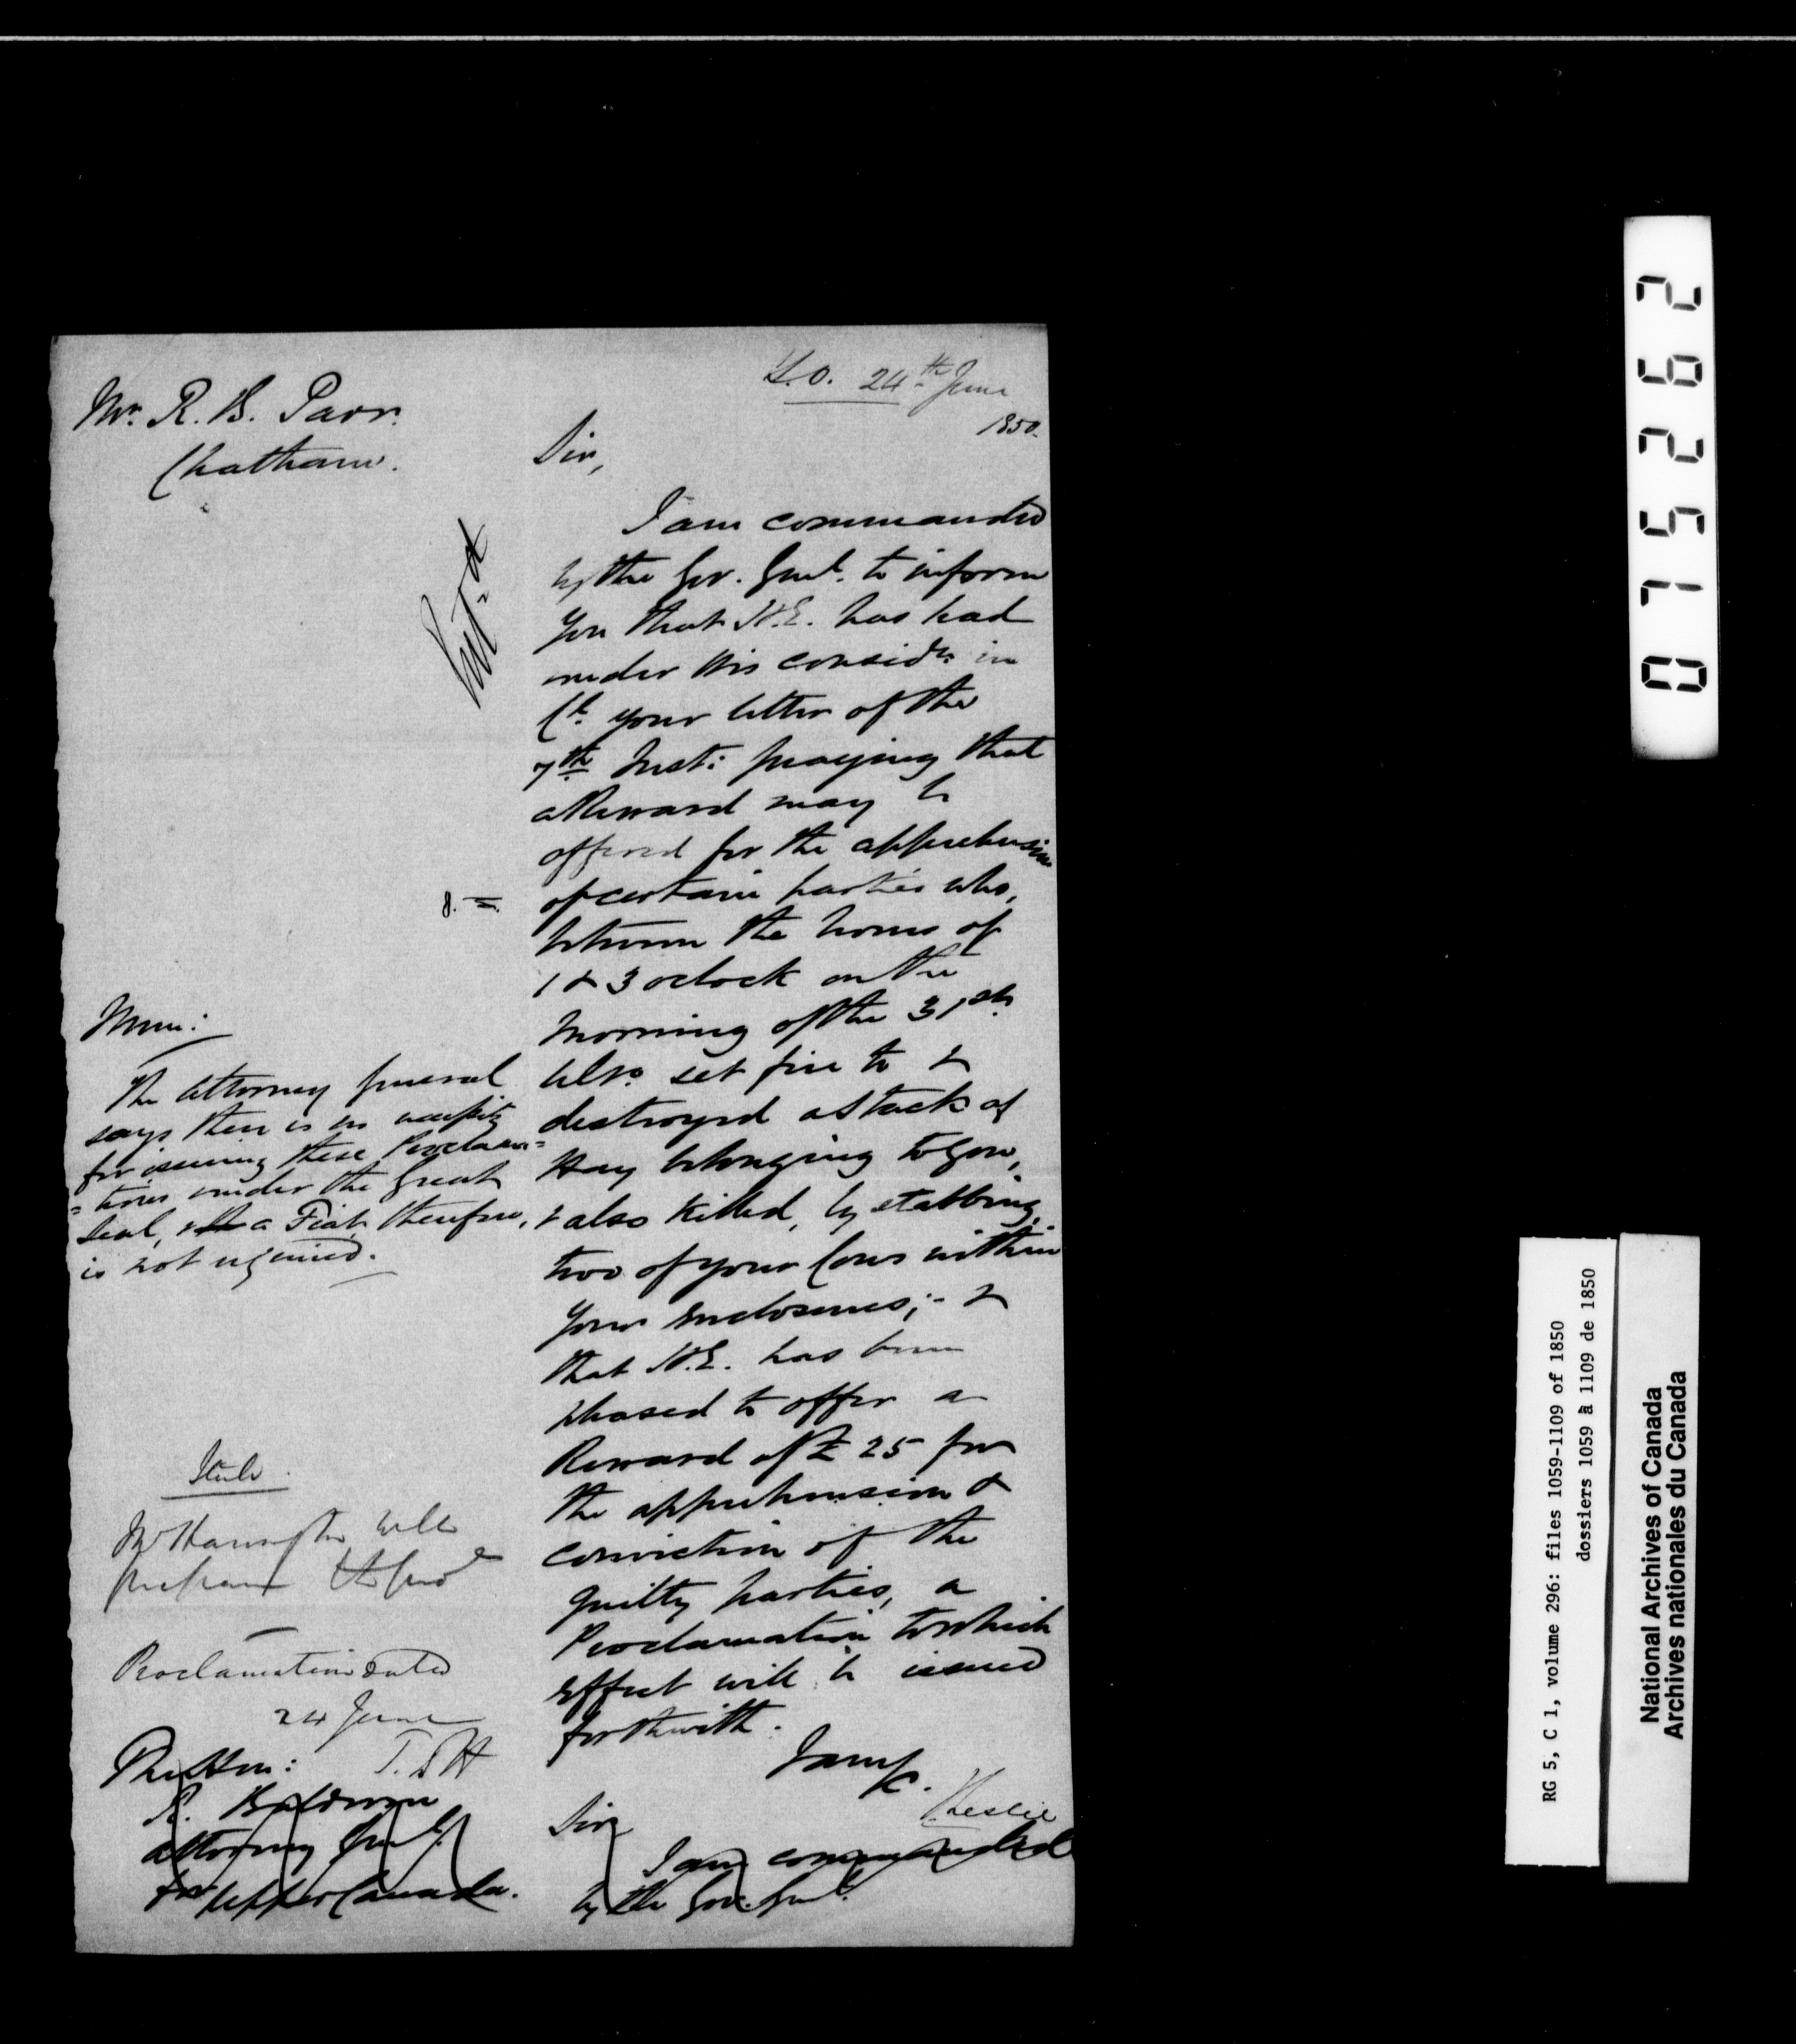 S.O. 24th June
1850.
Mr. R. B. Parr.
Chatham.
Sir,
I am commanded
by the Gov. Genl. to inform
you that H.E. has had
under his considn. in
Cl. your letter of the
7th Inst: praying that
a Reward may be
offered for the apprehension
of certain parties who,
between the hours of
1 & 3 oclock on the
morning of the 31st
ulto. set fire to &
destroyed a Stack of
Hay belonging to you,
& also killed, by stabbing,
two of your Cows within
your enclosures; - &
that H.E. has been
pleased to offer a
Reward of £25 for
the apprehension &
conviction of the
guilty parties, a
Proclamation to which
effect will be issued
forthwith.
I am &c.
J Leslie
8. =
Mem:
The Attorney General
says there is no necessity
for issuing these Proclama=
=tions under the Great
Seal, a Fiat, therefore,
is not required.
Mr Harington will
prepare the
Proclamation dated
24 June
The Hon:
R. Baldwin
Attorney Genl.
for Upper Canada.
Sir
I am commanded
by the Gov. Genl.
075262
RG 5, C 1, volume 296: files 1059-1109 of 1850
dossiers 1059 à 1109 de 1850
National Archives of Canada
Archives nationales du Canada